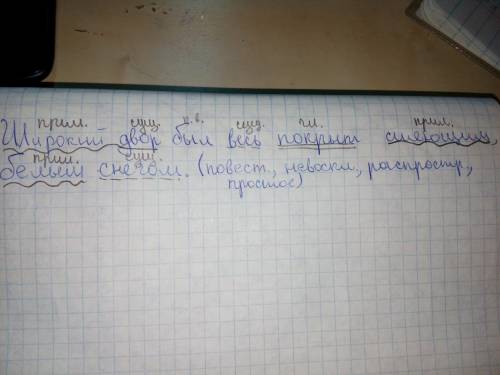 прил. сущ. н.в. сущ. гл. прил.
Широкий двор был весь покрыт сияющим,
прил. сущ.
белым снегом. (повест., невоскл, распростр,
простое)